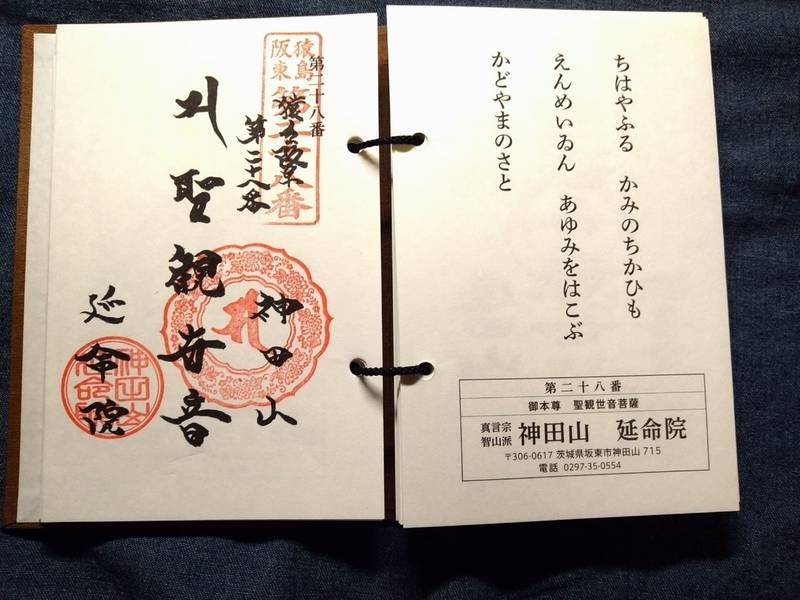 ちはやふる　かみのちかひも
えんめいゐん　あゆみをはこぶ
かどやまのさと
第二十八番
御本尊　聖観世音菩薩
真言宗
智山派
神田山　延命院
〒306-0617 茨城県坂東市神田山 715
電話 0297-35-0554
第二十八番
猿島
阪東
第二十八番
第二十八番
神田山
聖観世音
延命院